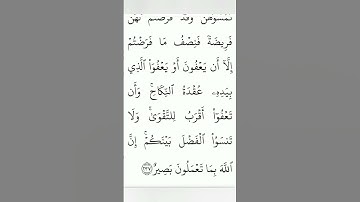 تَمَسُّوهُنَّ وَقَدْ فَرَضْتُمْ لَهُنَّ
فَرِيضَةً فَنِصْفُ مَا فَرَضْتُمْ
إِلَّآ أَن يَعْفُونَ أَوْ يَعْفُوَا۟ ٱلَّذِي
بِيَدِهِۦ عُقْدَةُ ٱلنِّكَاحِ ۚ وَأَن
تَعْفُوٓا۟ أَقْرَبُ لِلتَّقْوَىٰ ۚ وَلَا
تَنسَوُا۟ ٱلْفَضْلَ بَيْنَكُمْ ۚ إِنَّ
ٱللَّهَ بِمَا تَعْمَلُونَ بَصِيرٌ ٢٣٧